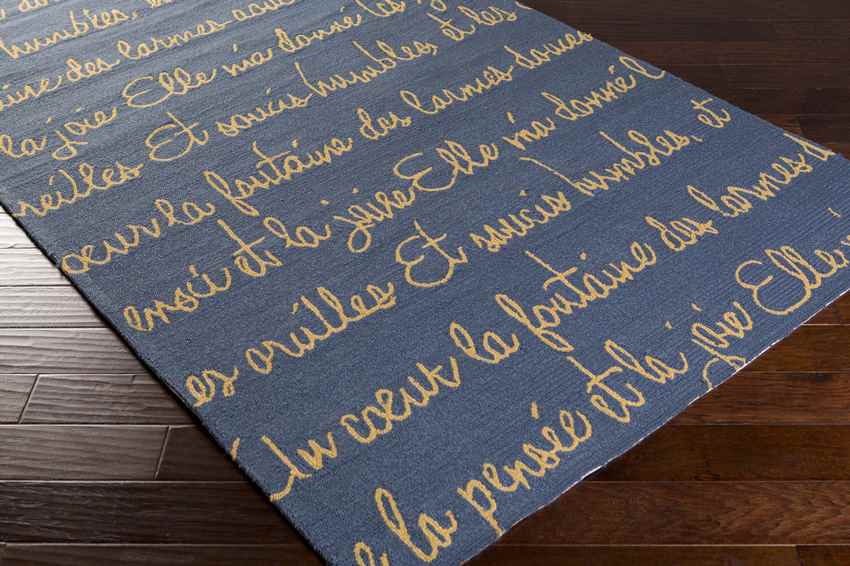 humbles,
des larmes
la joie Elle m'a donné les
oreilles Et soucis humbles, et les
cœur la fontaine des larmes douces
ensée et la joie Elle m'a donné
es oreilles Et soucis humbles, et
Un cœur la fontaine des larmes d
e la pensée et la joie Elle